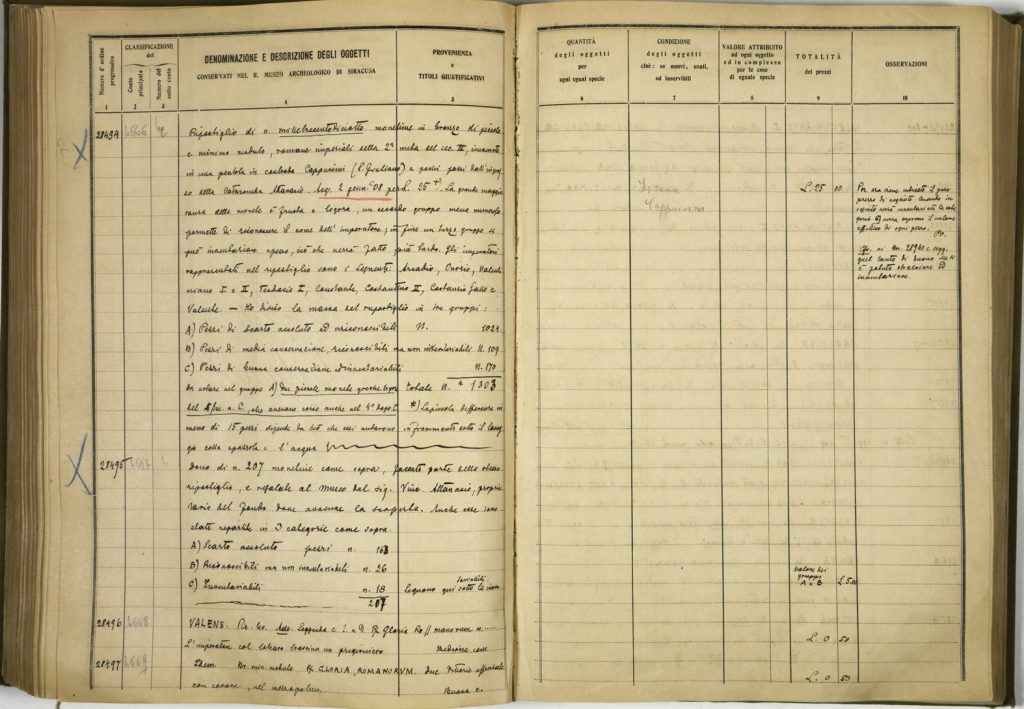 Numero d'ordine progressivo
CLASSIFICAZIONE
del
Conto principale
Numero del sotto conto
DENOMINAZIONE E DESCRIZIONE DEGLI OGGETTI
CONSERVATI NEL R. MUSEO ARCHEOLOGICO DI SIRACUSA
PROVENIENZA
e
TITOLI GIUSTIFICATIVI
1 2 3 4 5
28494 2666 Ripostiglio di n. milletrecentodiciotto monetine in bronzo di piccolo
e minimo modulo, romane imperiali della 2ª metà del sec. IV, rinvenute
in una pentola in contrada Cappuccini (P. Giuliano) a pochi passi dall'ingres
so della Catacomba Attanasio. Acq. 2 genn. 08 per L. 25 *). La grande maggio
ranza delle monete è frusta e logora, un secondo gruppo meno
permette di riconoscere il nome dell'imperatore; in fine un terzo gruppo si
può inventariare, ciò che verrà fatto più tardo. Gli imperatori
rappresentati nel ripostiglio sono i seguenti: Arcadio, Onorio, Valenti
niano I e II, Teodosio I, Constante, Costantino II, Costanzio Gallo e
Valente. — Ho diviso la massa del ripostiglio in tre gruppi:
A) Pezzi di scarto assoluto ed irriconoscibili N. 1024
B) Pezzi di media conservazione, riconoscibili ma non inventariabili N. 109
C) Pezzi di buona conservazione ed inventariabili N. 170
Da notare nel gruppo A) Due piccole monete greche Totale N. * 1303
del a. C., che avevano corso anche nel 4º dopo C. *) La piccola differenza in
meno di 15 pezzi dipende da ciò che essi andarono in frammenti sotto il lavag
gio colla spazzola e l'acqua
28495 Dono di n. 207 monetine come sopra, facenti parte dello stesso
ripostiglio, e regalate al Museo dal Sig. Vinc. Attanasio, proprie
tario del fondo dove avvenne la scoperta. Anche esse sono
state ripartite in 3 categorie come sopra.
A) Scarto assoluto pezzi n. 163
B) Riconoscibili ma non inventariabili n. 26
C) Inventariabili n. 18 Seguono qui sotto le inven
tariabili.
207
28496 2668 VALENS. Pic. br. Leggenda c. R Gloria Ro // manorum
L'imperatore col labaro trascina un prigioniero Mediocre cons.
28497 2669 Idem. Br. min. modulo R GLORIA ROMANORVM. Due Vittorie affrontate
con corone, nel Buona c.
QUANTITÀ
degli oggetti
per
ogni egual specie
CONDIZIONE
degli oggetti
cioè: se nuovi, usati,
od inservibili
VALORE ATTRIBUITO
ad ogni oggetto
ed in complesso
per le cose
di eguale specie
TOTALITÀ
dei prezzi
OSSERVAZIONI
6 7 8 9 10
Siracusa
Cappuccini
L. 25 00
Per ora viene indicato il puro
prezzo di acquisto. Quando in
seguito verrà inventariata la cate
goria C) verrà espresso il valore
effettivo di ogni pezzo.
Cfr. ai Nr. 28940 e segg.
quel tanto di buono che si
è potuto estrarre ed
inventariare.
Valore dei
gruppi
A e B L. 5.00
L. 0 50
L. 0 50